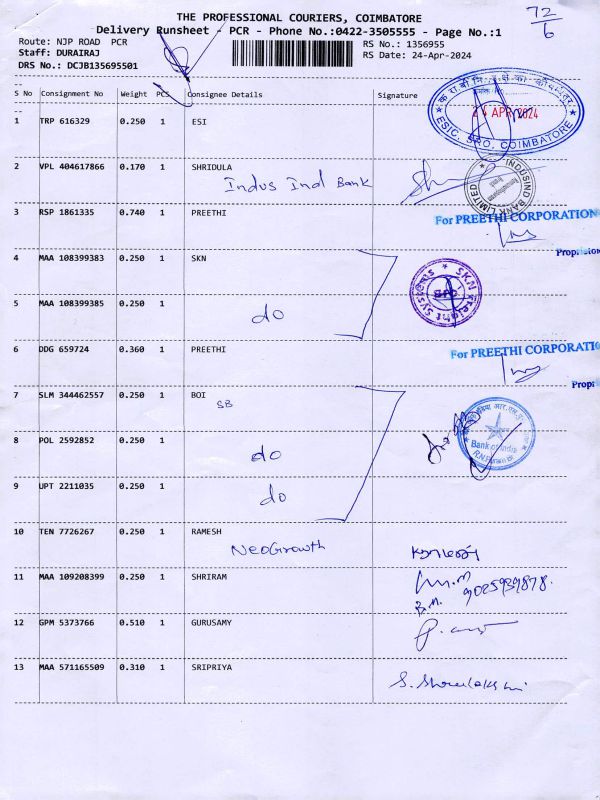 THE PROFESSIONAL COURIERS, COIMBATORE
72/6
Delivery Runsheet - PCR - Phone No.:0422-3505555 - Page No.:1
Route: NJP ROAD PCR
RS No.: 1356955
Staff: DURAIRAJ
RS Date: 24-Apr-2024
DRS No.: DCJB135695501
S No Consignment No Weight PCS Consignee Details Signature
1 TRP 616329 0.250 1 ESI
24 APR 2024
ESIC, SRO, COIMBATORE
2 VPL 404617866 0.170 1 SHRIDULA
Indus Ind Bank
INDUSIND BANK LIMITED
3 RSP 1861335 0.740 1 PREETHI
For PREETHI CORPORATION
Proprietor
4 MAA 108399383 0.250 1 SKN
SKN Freight Systems
5 MAA 108399385 0.250 1
do
6 DDG 659724 0.360 1 PREETHI
For PREETHI CORPORATION
Propri
7 SLM 344462557 0.250 1 BOI
SB
Bank of India
8 POL 2592852 0.250 1
do
9 UPT 2211035 0.250 1
do
10 TEN 7726267 0.250 1 RAMESH
NeoGrowth
11 MAA 109208399 0.250 1 SHRIRAM
9025939878
12 GPM 5373766 0.510 1 GURUSAMY
13 MAA 571165509 0.310 1 SRIPRIYA